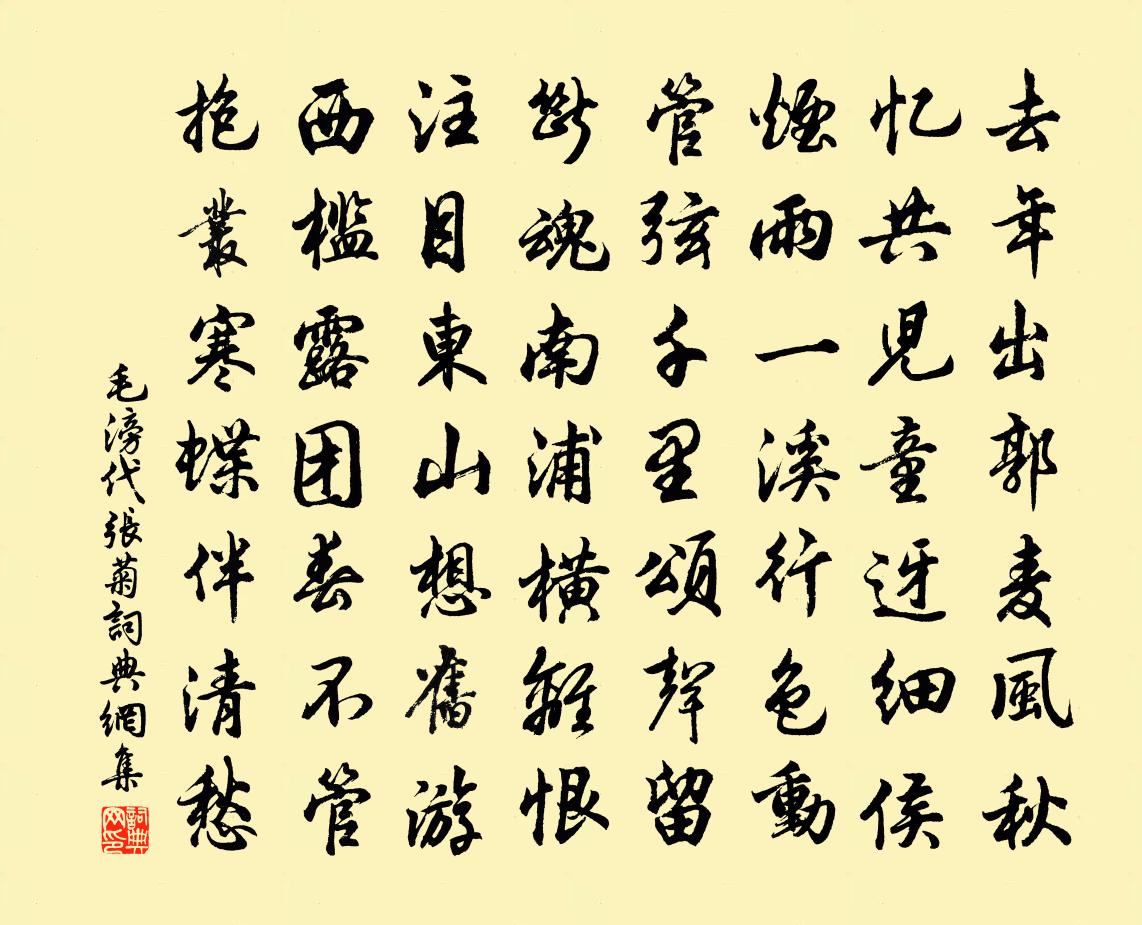 去年出郭麦風秋
忆共兒童迓细侯
煙雨一溪行色動
管弦千里頌聲留
斷魂南浦橫離恨
注目東山想舊游
西檻露团春不管
抱叢寒蝶伴清愁
毛滂代張菊詞典網集
詞典网印